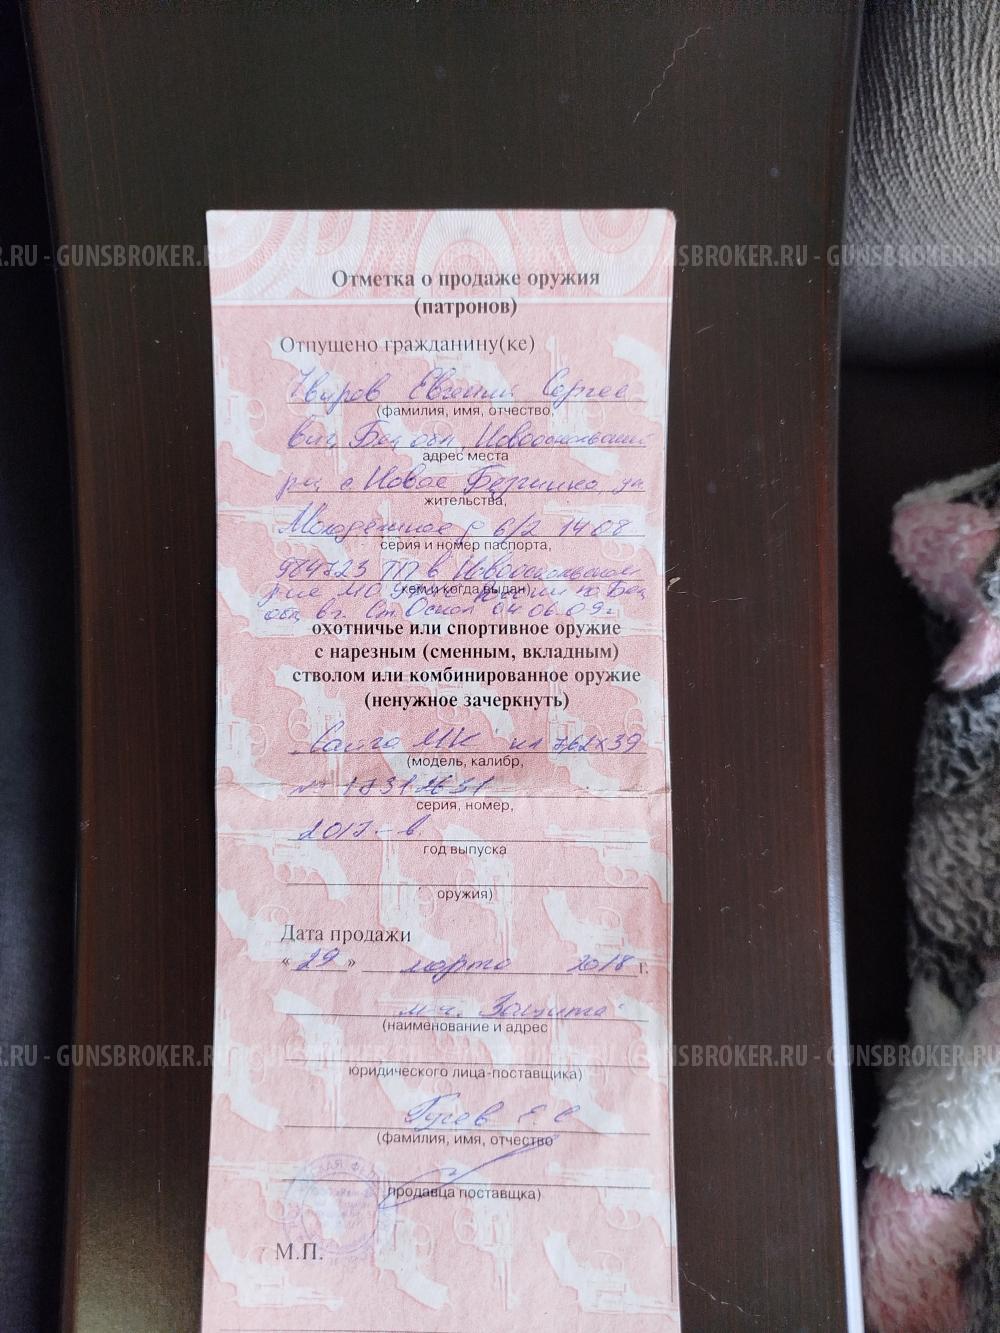 .RU - GUNSBROKER.RU - GUNSBROKER.RU - GUNSBROKER.RU - GUNSBROKER.RU - GUNSBROKER.RU
Отметка о продаже оружия
(патронов)
Отпущено гражданину(ке)
Евгений Сергее
(фамилия, имя, отчество,
Бел обл, Новооскольский
адрес места
с Новое Безгинко, ул
жительства,
Молодёжное д 6/2 14 08
серия и номер паспорта,
ТП в Новооскольском
кем и когда выдан)
обл в г. Ст. Оскол 04 06 09г
охотничье или спортивное оружие
с нарезным (сменным, вкладным)
стволом или комбинированное оружие
(ненужное зачеркнуть)
Сайга МК кл 7,62х39
(модель, калибр,
№
серия, номер,
2017-в
год выпуска
оружия)
Дата продажи
« 29 » марта 2018 г.
Защита"
(наименование и адрес
юридического лица-поставщика)
Гусев Е. С
(фамилия, имя, отчество
продавца поставщка)
М.П.
.RU - GUNSBROKER.RU - GUNSBROKER.RU - GUNSBROKER.RU - GUNSBROKER.RU - GUNSBROKER.RU